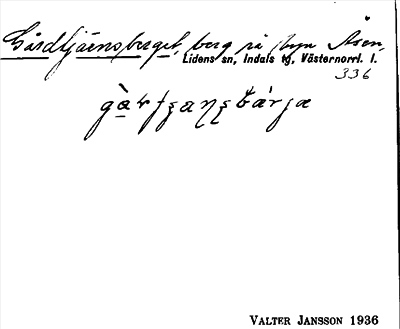 Gårdtjärnsberget, berg på byn Åsen,
Lidens sn, Indals tg, Västernorrl. l.
336
VALTER JANSSON 1936